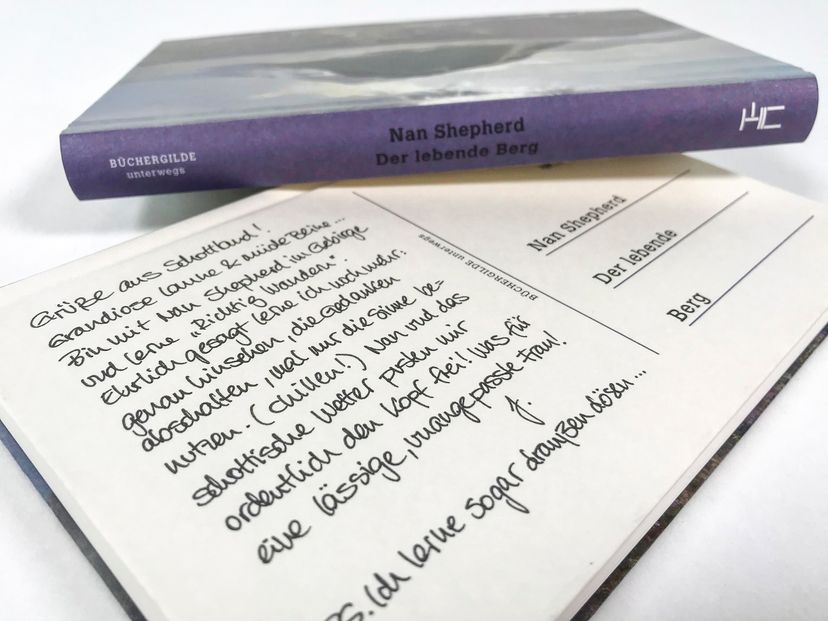 BÜCHERGILDE
unterwegs
Nan Shepherd
Der lebende Berg
Grüße aus Schottland!
Grandiose Laune & müde Beine...
Bin mit Nan Shepherd im Gebirge
und lerne „Richtig Wandern".
Ehrlich gesagt lerne ich noch mehr:
genau hinsehen, die Gedanken
abschalten, mal nur die Sinne be-
nutzen. (chillen!) Nan und das
schottische Wetter pusten mir
ordentlich den Kopf frei! Was für
eine lässige, unangepasste Frau!
J.
PS. Ich lerne sogar draußen dösen...
BÜCHERGILDE unterwegs
Nan Shepherd
Der lebende
Berg